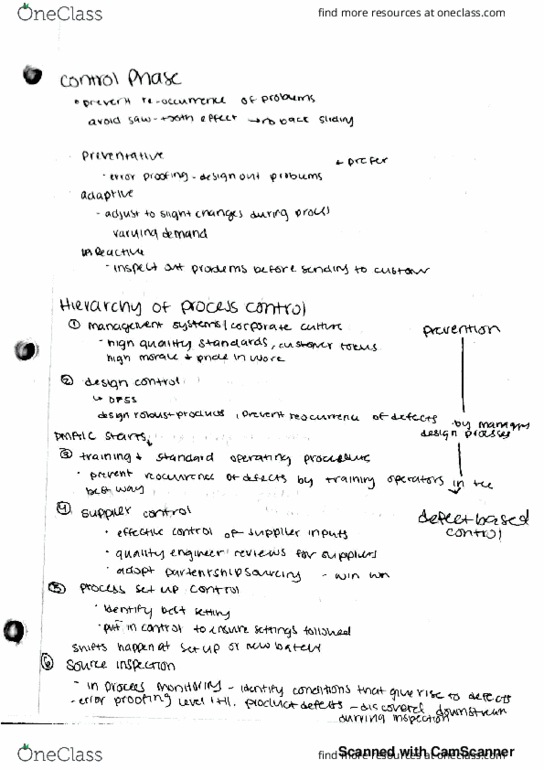 OneClass
find more resources at oneclass.com
Control Phase
• prevent re-occurrence of problems
avoid saw-tooth effect → no back sliding
Preventative
← prefer
- error proofing - design out problems
adaptive
- adjust to slight changes during process
varying demand
Reactive
- inspect out problems before sending to customer
Hierarchy of process control
① management systems/corporate culture
prevention
- high quality standards, customer focus
high morale + pride in work
② design control
↳ DFSS
design robust products, prevent reoccurrence of defects by
design processes
DMAIC starts↓
③ training + standard operating procedure
• prevent reoccurrence of defects by training operators in the
best way
④ supplier control
defect based
control
• effective control of supplier inputs
• quality engineer reviews for suppliers
• adopt partentship sourcing - win win
⑤ process set up control
• identify best setting
• put in control to ensure settings followed
shifts happen at set up or new batch
⑥ source inspection
- in process monitoring - identify conditions that give rise to defects
- error proofing level product defects - discovered downstream
during inspection
OneClass
find more resources at oneclass.com
Scanned with CamScanner